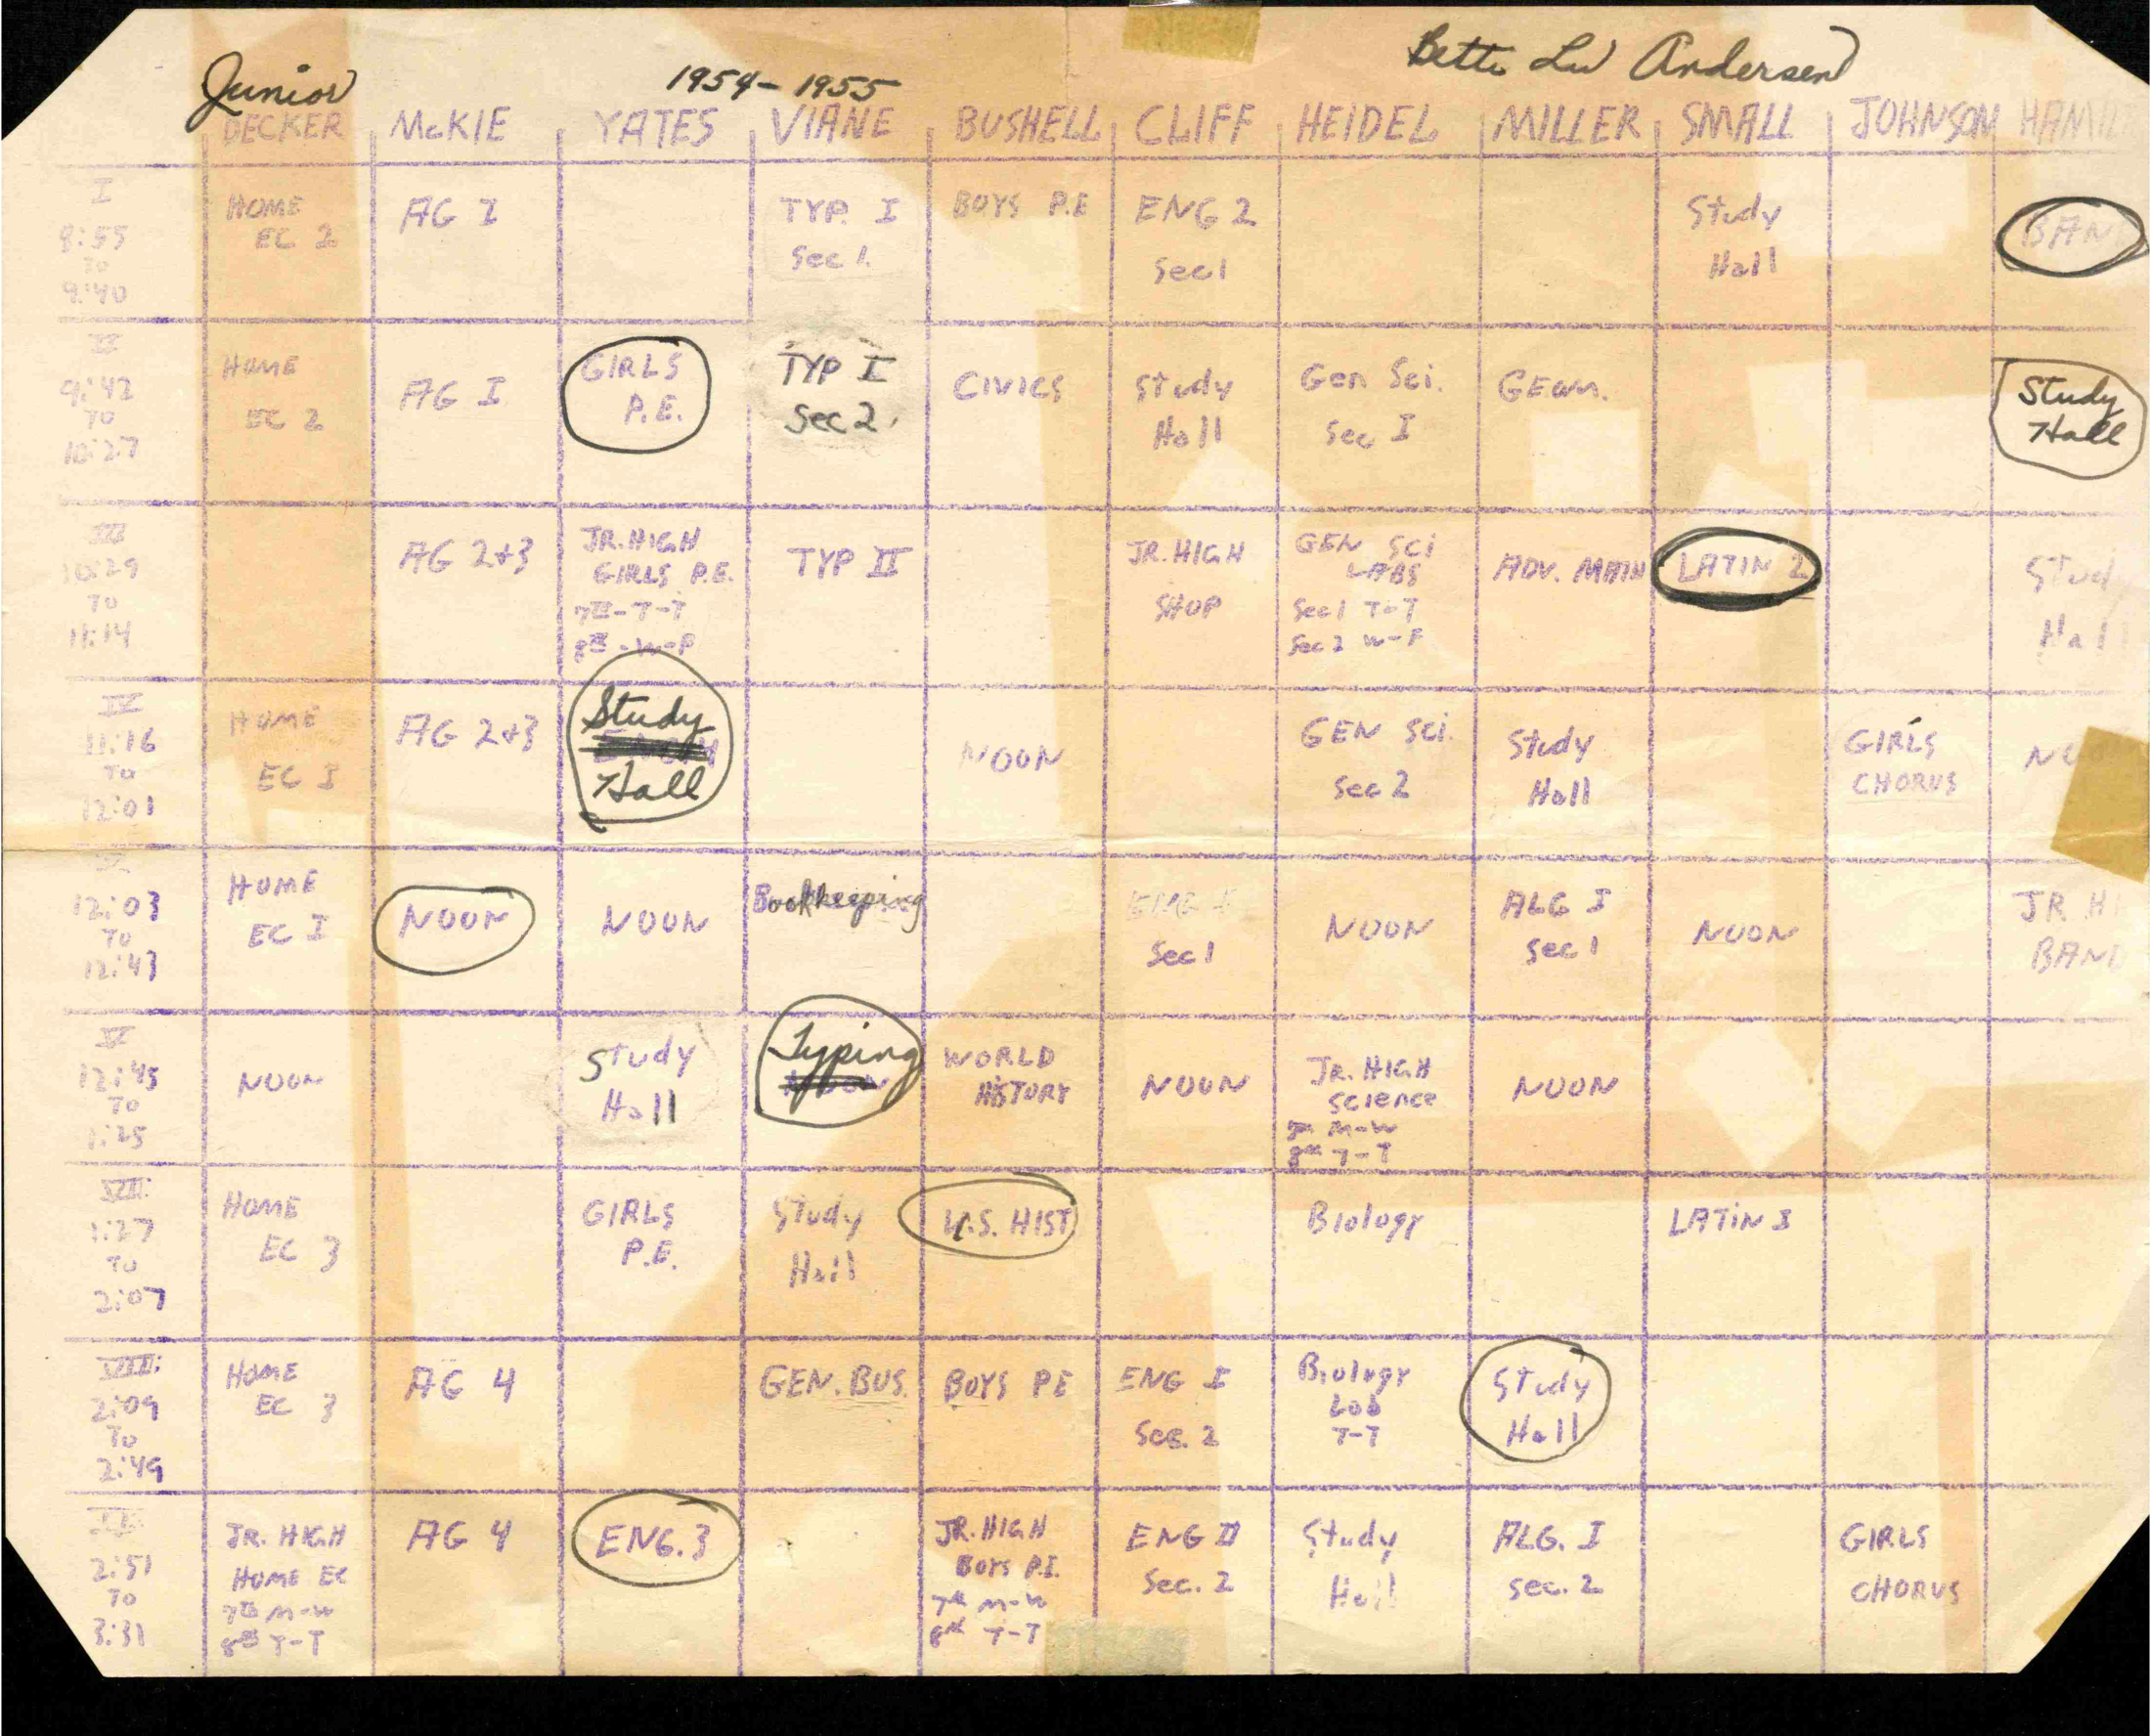 Junior
1954-1955
Bette Lu Andersen
DECKER McKIE YATES VIANE BUSHELL CLIFF HEIDEL MILLER SMALL JOHNSON
I
8:55
TO
9:40
HOME
EC 2
AG I
TYP. I
Sec 1.
BOYS P.E
ENG 2
Sec 1
Study
Hall
BAN
II
9:42
TO
10:27
HOME
EC 2
AG I
GIRLS
P.E.
TYP I
Sec 2.
CIVICS
Study
Hall
Gen Sci.
Sec I
GEOM.
Study
Hall
III
10:29
TO
11:14
AG 2+3
JR. HIGH
GIRLS P.E.
7th-T-T
8th-W-F
TYP II
JR. HIGH
SHOP
GEN SCI
LABS
Sec 1 T-T
Sec 2 W-F
ADV. MATH
LATIN 2
Study
Hall
IV
11:16
TO
12:01
HOME
EC I
AG 2+3
Study
Hall
NOON
GEN SCI.
Sec 2
Study
Hall
GIRLS
CHORUS
V
12:03
TO
12:43
HOME
EC I
NOON
NOON
Bookkeeping
Sec 1
NOON
ALG I
Sec 1
NOON
JR H
BAN
12:45
TO
1:25
NOON
Study
Hall
Typing
WORLD
HISTORY
NOON
JR. HIGH
Science
7th M-W
8th T-T
NOON
VII
1:27
TO
2:07
HOME
EC 3
GIRLS
P.E.
Study
Hall
U.S. HIST
Biology
LATIN I
VIII
2:09
TO
2:49
HOME
EC 3
AG 4
GEN. BUS.
BOYS PE
ENG I
Sec. 2
Biology
Lab
T-T
Study
Hall
2:51
TO
3:31
JR. HIGH
HOME EC
7th M-W
8th T-T
AG 4
ENG. 3
JR. HIGH
BOYS P.E.
7th M-W
8th T-T
ENG II
Sec. 2
Study
Hall
ALG. I
Sec. 2
GIRLS
CHORUS